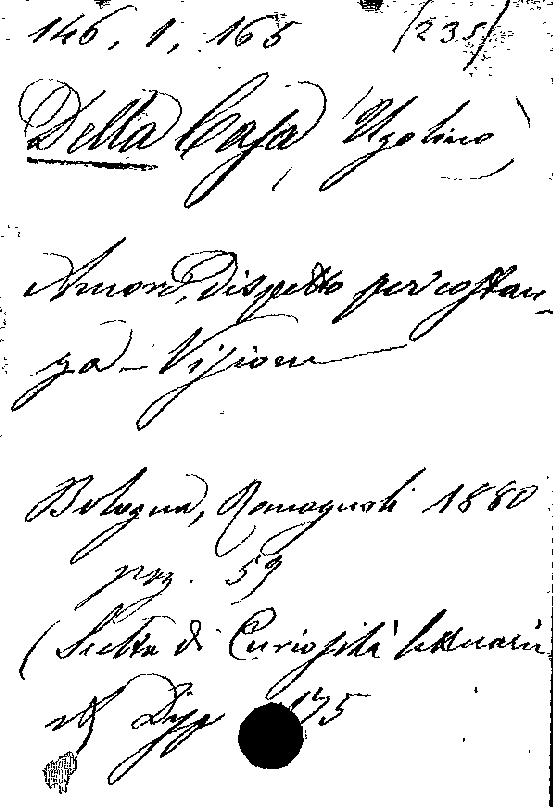 146, 1, 165 (235)
Della Casa, Ugolino
Amore, Dispetto per costan-
za - Visione
Bologna, Romagnoli 1880
pag. 59
(Scelta di Curiosità letterarie
Disp 175